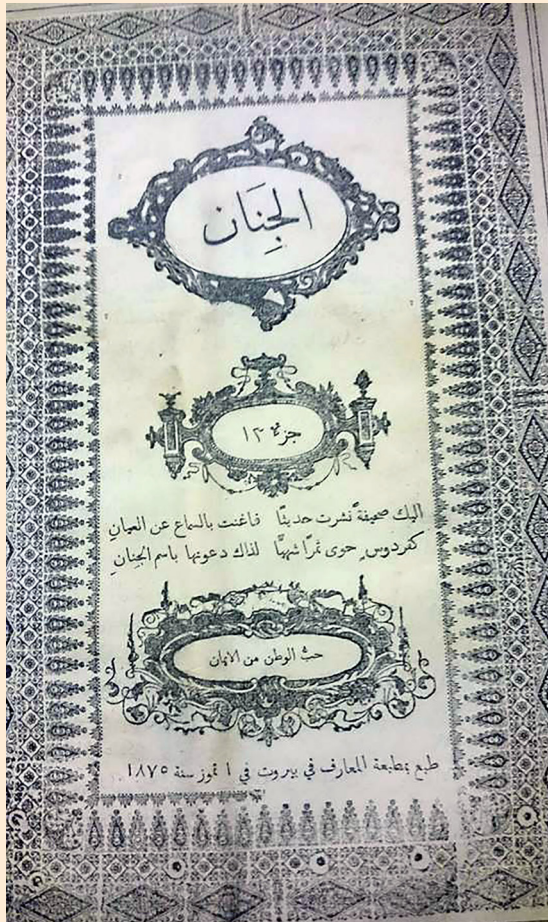 الجِنَان
جزء ١٣
اليك صحيفةً نشرت حديثًا فاغنت بالسماع عن العيان
كفردوسٍ حوى ثمرًا شهيًّا لذاك دعوتها باسم الجنانِ
حبُّ الوطن من الايمان
طبع بمطبعة المعارف في بيروت في ١ تموز سنة ١٨٧٥